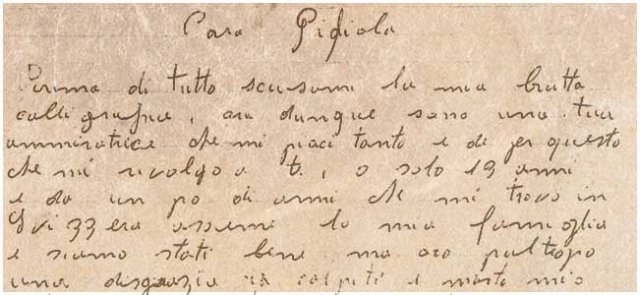 Cara Pidiola
Prima di tutto scusami la mia brutta
calligrafia, ora dunque sono una tua
ammiratrice che mi piaci tanto e di per questo
che mi rivolgo a t., o solo 19 anni
e da un po di anni che mi trovo in
33 era assieme la mia famiglia
e siamo stati bene ma oro pultropo
una disgrazia ra colpiti e morto mio